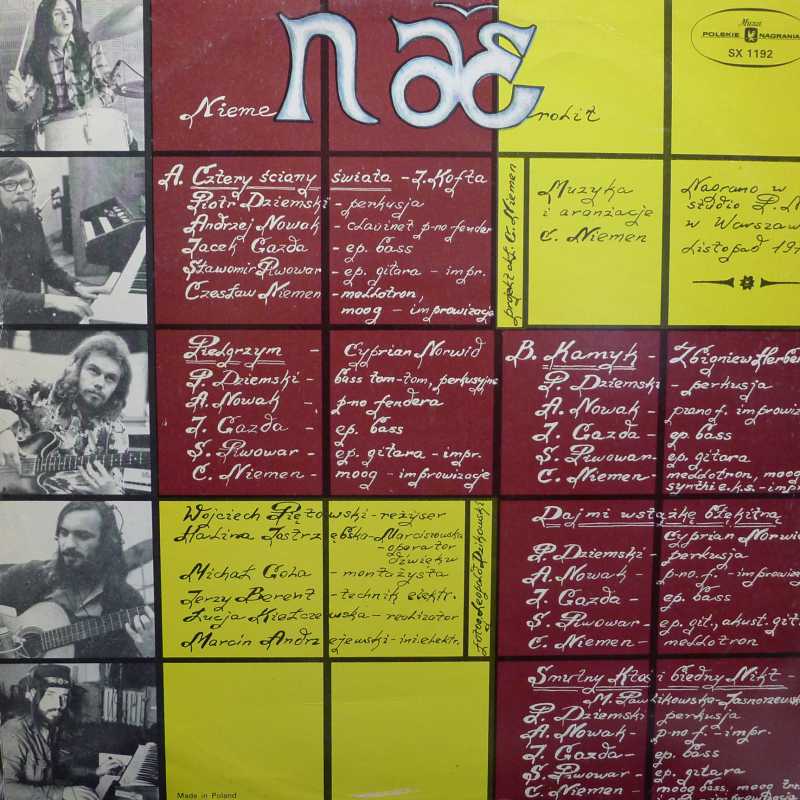 Muza
POLSKIE NAGRANIA
SX 1192
Nieme
n ae
rolit
A. Cztery ściany świata - J. Kofta
Piotr Dziemski - perkusja
Andrzej Nowak - clavinet p-no fender
Jacek Gazda - ep. bass
Sławomir Piwowar - ep. gitara - impr.
Czesław Niemen - mellotron,
moog - improwizacja
projekt ok. C. Niemen
Muzyka
i aranżacje
C. Niemen
Nagrano w
studio P. N
w Warszaw
Listopad 197
Pielgrzym - Cyprian Norwid
P. Dziemski - bass tom-tom, perkusyjne
A. Nowak - p-no fendera
J. Gazda - ep. bass
S. Piwowar - ep. gitara - impr.
C. Niemen - moog - improwizacje
B. Kamyk - Zbigniew Herber
P. Dziemski - perkusja
A. Nowak - piano f. improwiz
J. Gazda - ep. bass
S. Piwowar - ep. gitara
C. Niemen - mellotron, moog
synthi e.k.s. - impr
Wojciech Piętowski - reżyser
Halina Jastrzębska - Marciszewska
- operator
dźwięku
Michał Gola - montażysta
Jerzy Berent - technik elektr.
Łucja Kiełczewska - realizator
Marcin Andrzejewski - inż. elektr.
foto: Leopold Dzikowski
Daj mi wstążkę błękitną
Cyprian Norwi
P. Dziemski - perkusja
A. Nowak - p-no. f. - improwiz
J. Gazda - ep. bass
S. Piwowar - ep. git., akust. git.
C. Niemen - mellotron
Smutny Ktoś i biedny Nikt -
M. Pawlikowska-Jasnorzewsk
P. Dziemski perkusja
A. Nowak - p-no f. - impr.
J. Gazda - ep. bass
S. Piwowar - ep. gitara
C. Niemen - moog bass, moog
Made in Poland